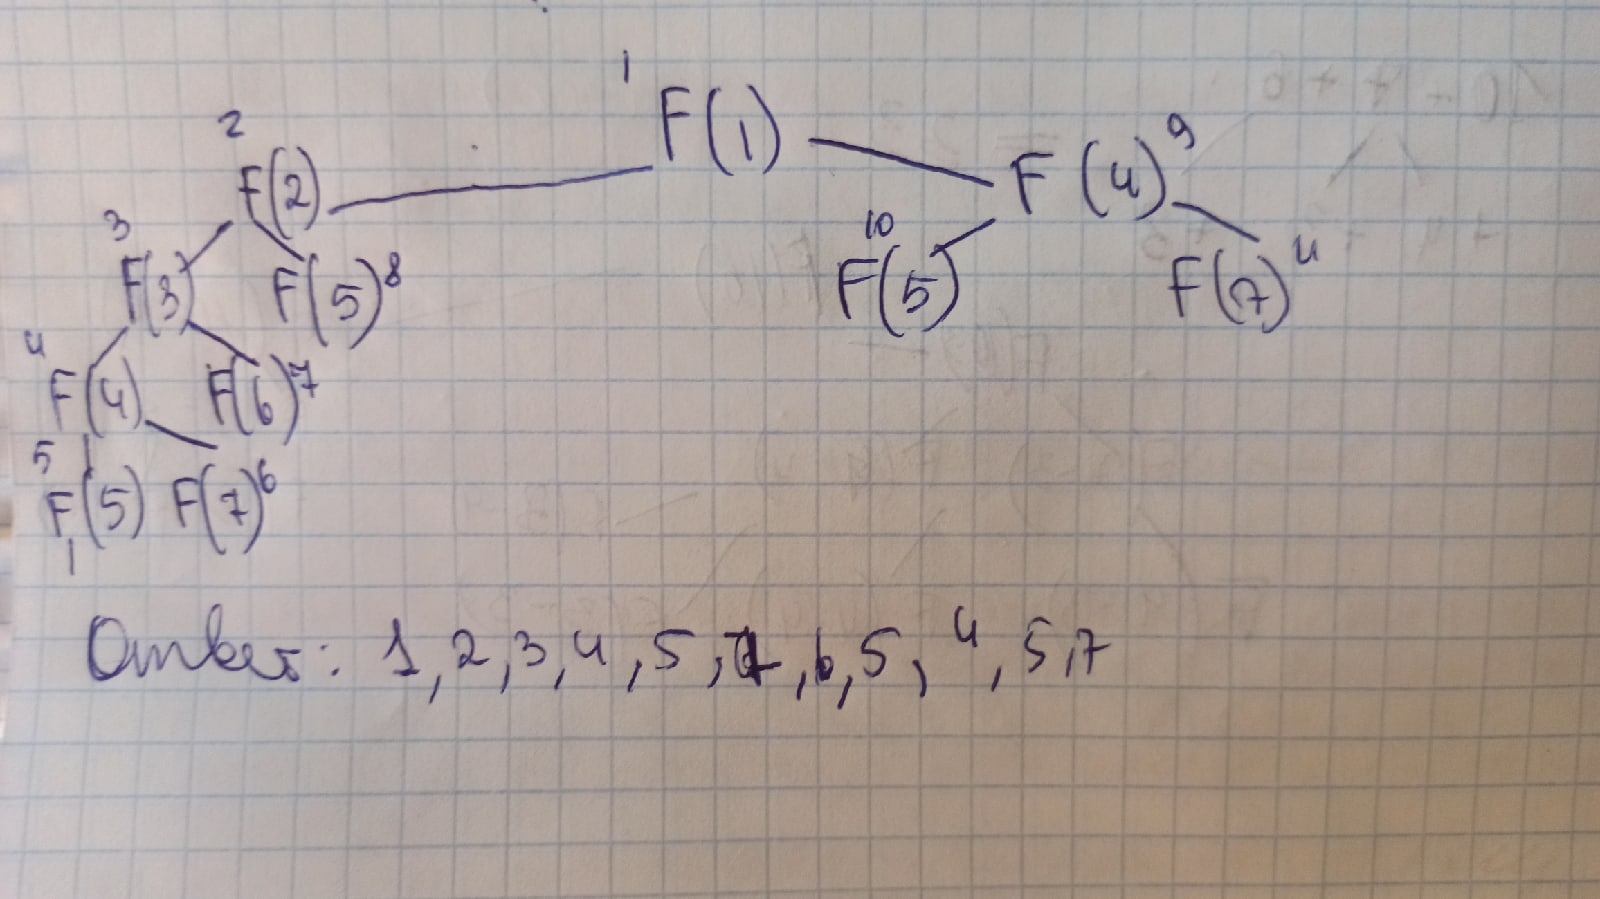 1
F(1)
2
F(2)
9
F(4)
3
F(3)
F(5) 8
10
F(5)
F(7) 11
4
F(4)
F(6) 7
5
F(5)
F(7) 6
Ответ: 1, 2, 3, 4, 5, 7, 6, 5, 4, 5, 7